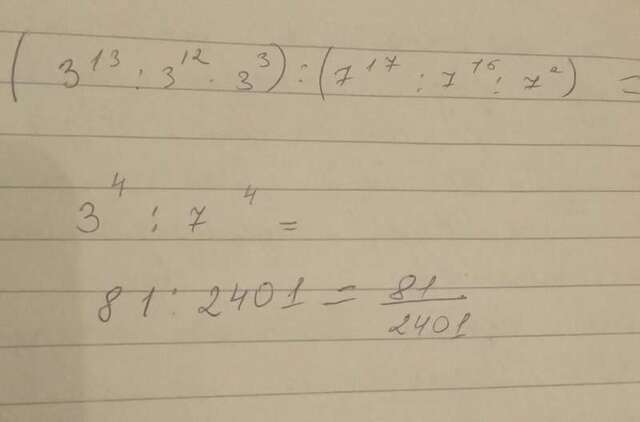 (3¹³ : 3¹² · 3³) : (7¹⁷ : 7¹⁶ : 7²) =
3⁴ : 7⁴ =
81 : 2401 = 81/2401